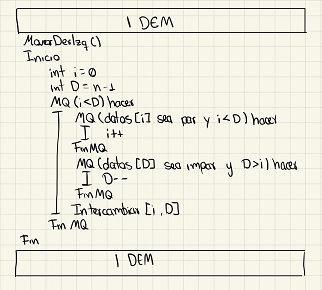 I DEM
MoverDerIzq()
Inicio
int i=0
int D=n-1
MQ (i<D) hacer
MQ (datos [i] sea par y i<D) hacer
i++
FinMQ
MQ (datos [D] sea impar y D>i) hacer
D--
FinMQ
Intercambiar [i,D]
Fin MQ
Fin
I DEM